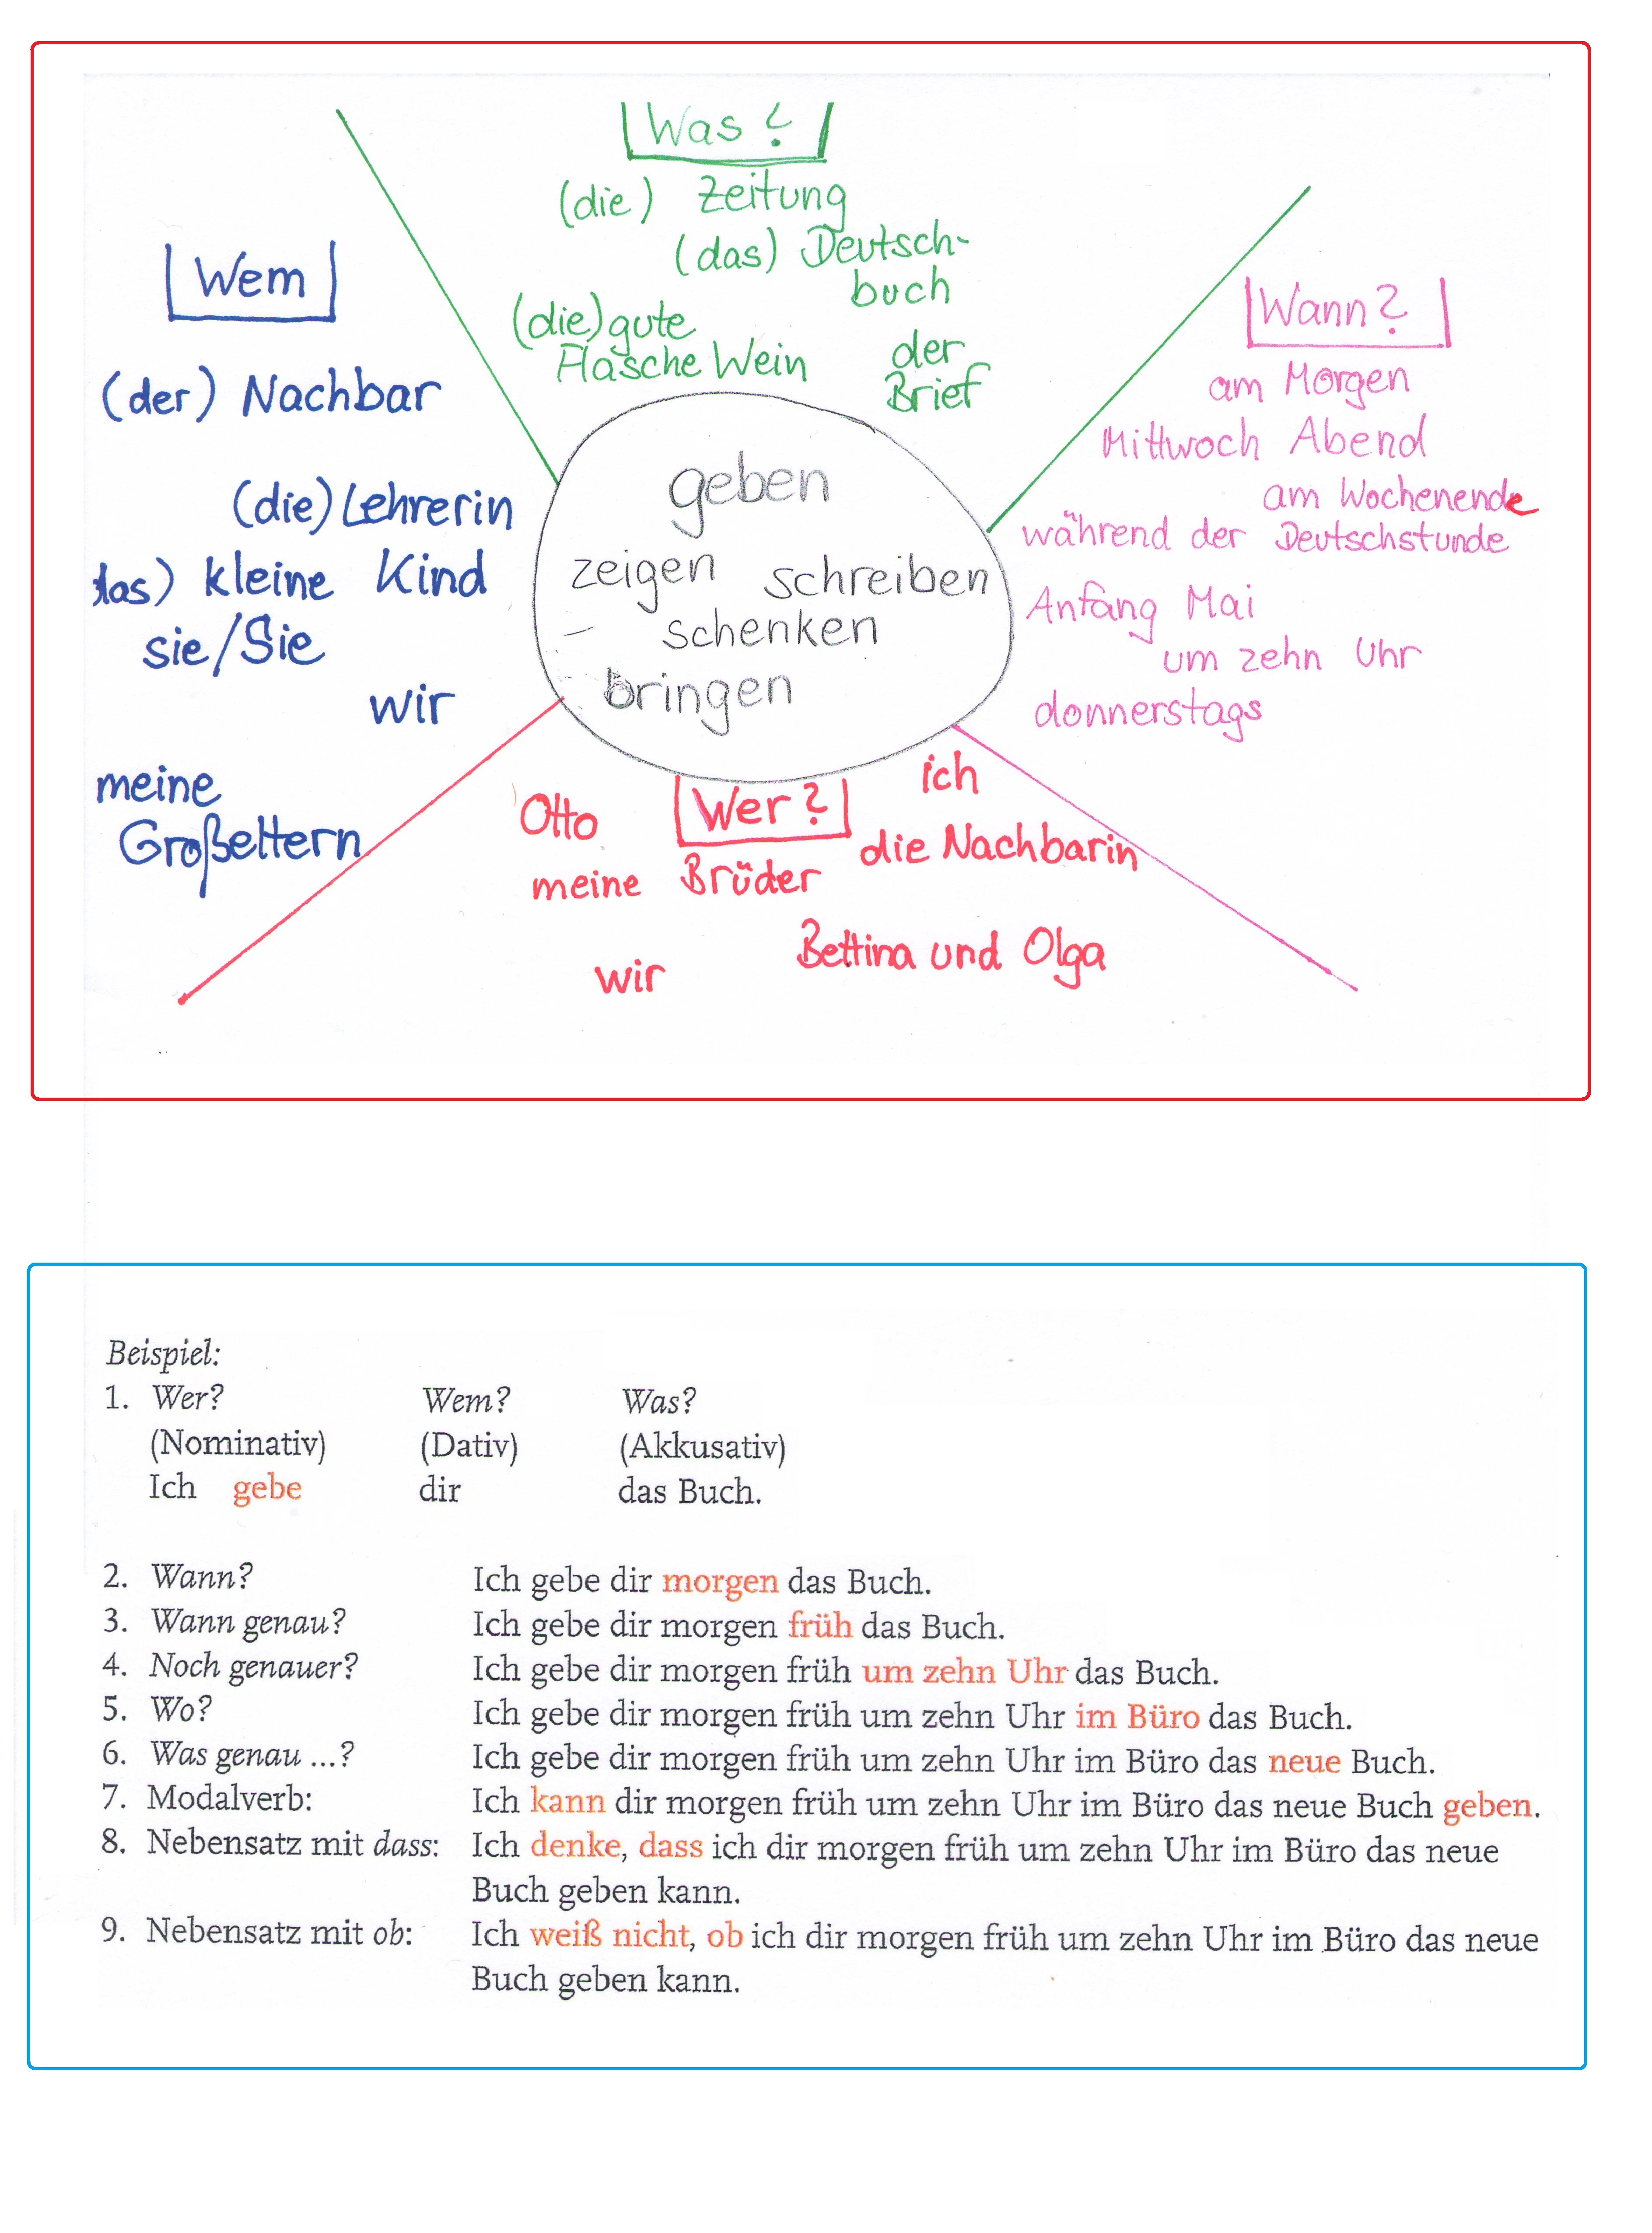 Was ?
(die) Zeitung
(das) Deutsch-
buch
(die) gute
Flasche Wein
der
Brief
Wem
(der) Nachbar
(die) Lehrerin
das) kleine Kind
sie/Sie
wir
meine
Großeltern
Wann?
am Morgen
Mittwoch Abend
am Wochenende
während der Deutschstunde
Anfang Mai
um zehn Uhr
donnerstags
geben
zeigen schreiben
schenken
bringen
Wer?
Otto
ich
die Nachbarin
meine Brüder
Bettina und Olga
wir
Beispiel:
1. Wer? Wem? Was?
(Nominativ) (Dativ) (Akkusativ)
Ich gebe dir das Buch.
2. Wann? Ich gebe dir morgen das Buch.
3. Wann genau? Ich gebe dir morgen früh das Buch.
4. Noch genauer? Ich gebe dir morgen früh um zehn Uhr das Buch.
5. Wo? Ich gebe dir morgen früh um zehn Uhr im Büro das Buch.
6. Was genau ...? Ich gebe dir morgen früh um zehn Uhr im Büro das neue Buch.
7. Modalverb: Ich kann dir morgen früh um zehn Uhr im Büro das neue Buch geben.
8. Nebensatz mit dass: Ich denke, dass ich dir morgen früh um zehn Uhr im Büro das neue
Buch geben kann.
9. Nebensatz mit ob: Ich weiß nicht, ob ich dir morgen früh um zehn Uhr im Büro das neue
Buch geben kann.